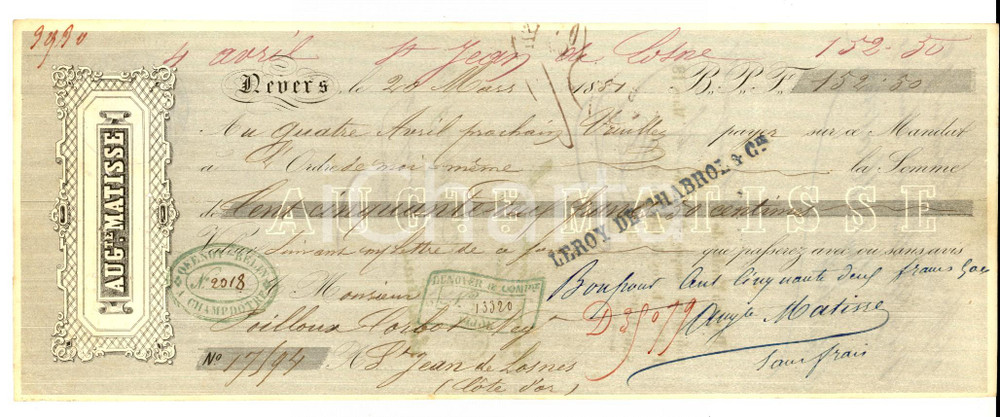 3930
4 avril St Jean de Losne 152-50
Nevers le 20 Mars 1881 B. P. F. 152.50
Au quatre Avril prochain Veuillez payer sur ce Mandat
à l'Ordre de moi-même la Somme
de Cent cinquante deux francs 50 centimes
AUGTE. MATISSE
AUGTE MATISSE
LEROY DE CHABROL & Cie
Valeur Suivant ma lettre de ce jour que passerez avec ou sans avis
No 2018
CHAMPDOTRE
A Monsieur
DENOYER & COMPIE
13320
DIJON
Bon pour Cent Cinquante deux francs 50c
Poilloux Corbot
D 3/079
Augte Matisse
No 17/94 A St Jean de Losnes
Sans frais
(Côte d'or)